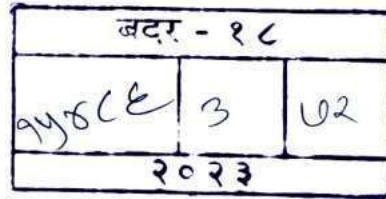 बदर - १८
१५४८६ ३ ७२
२०२३